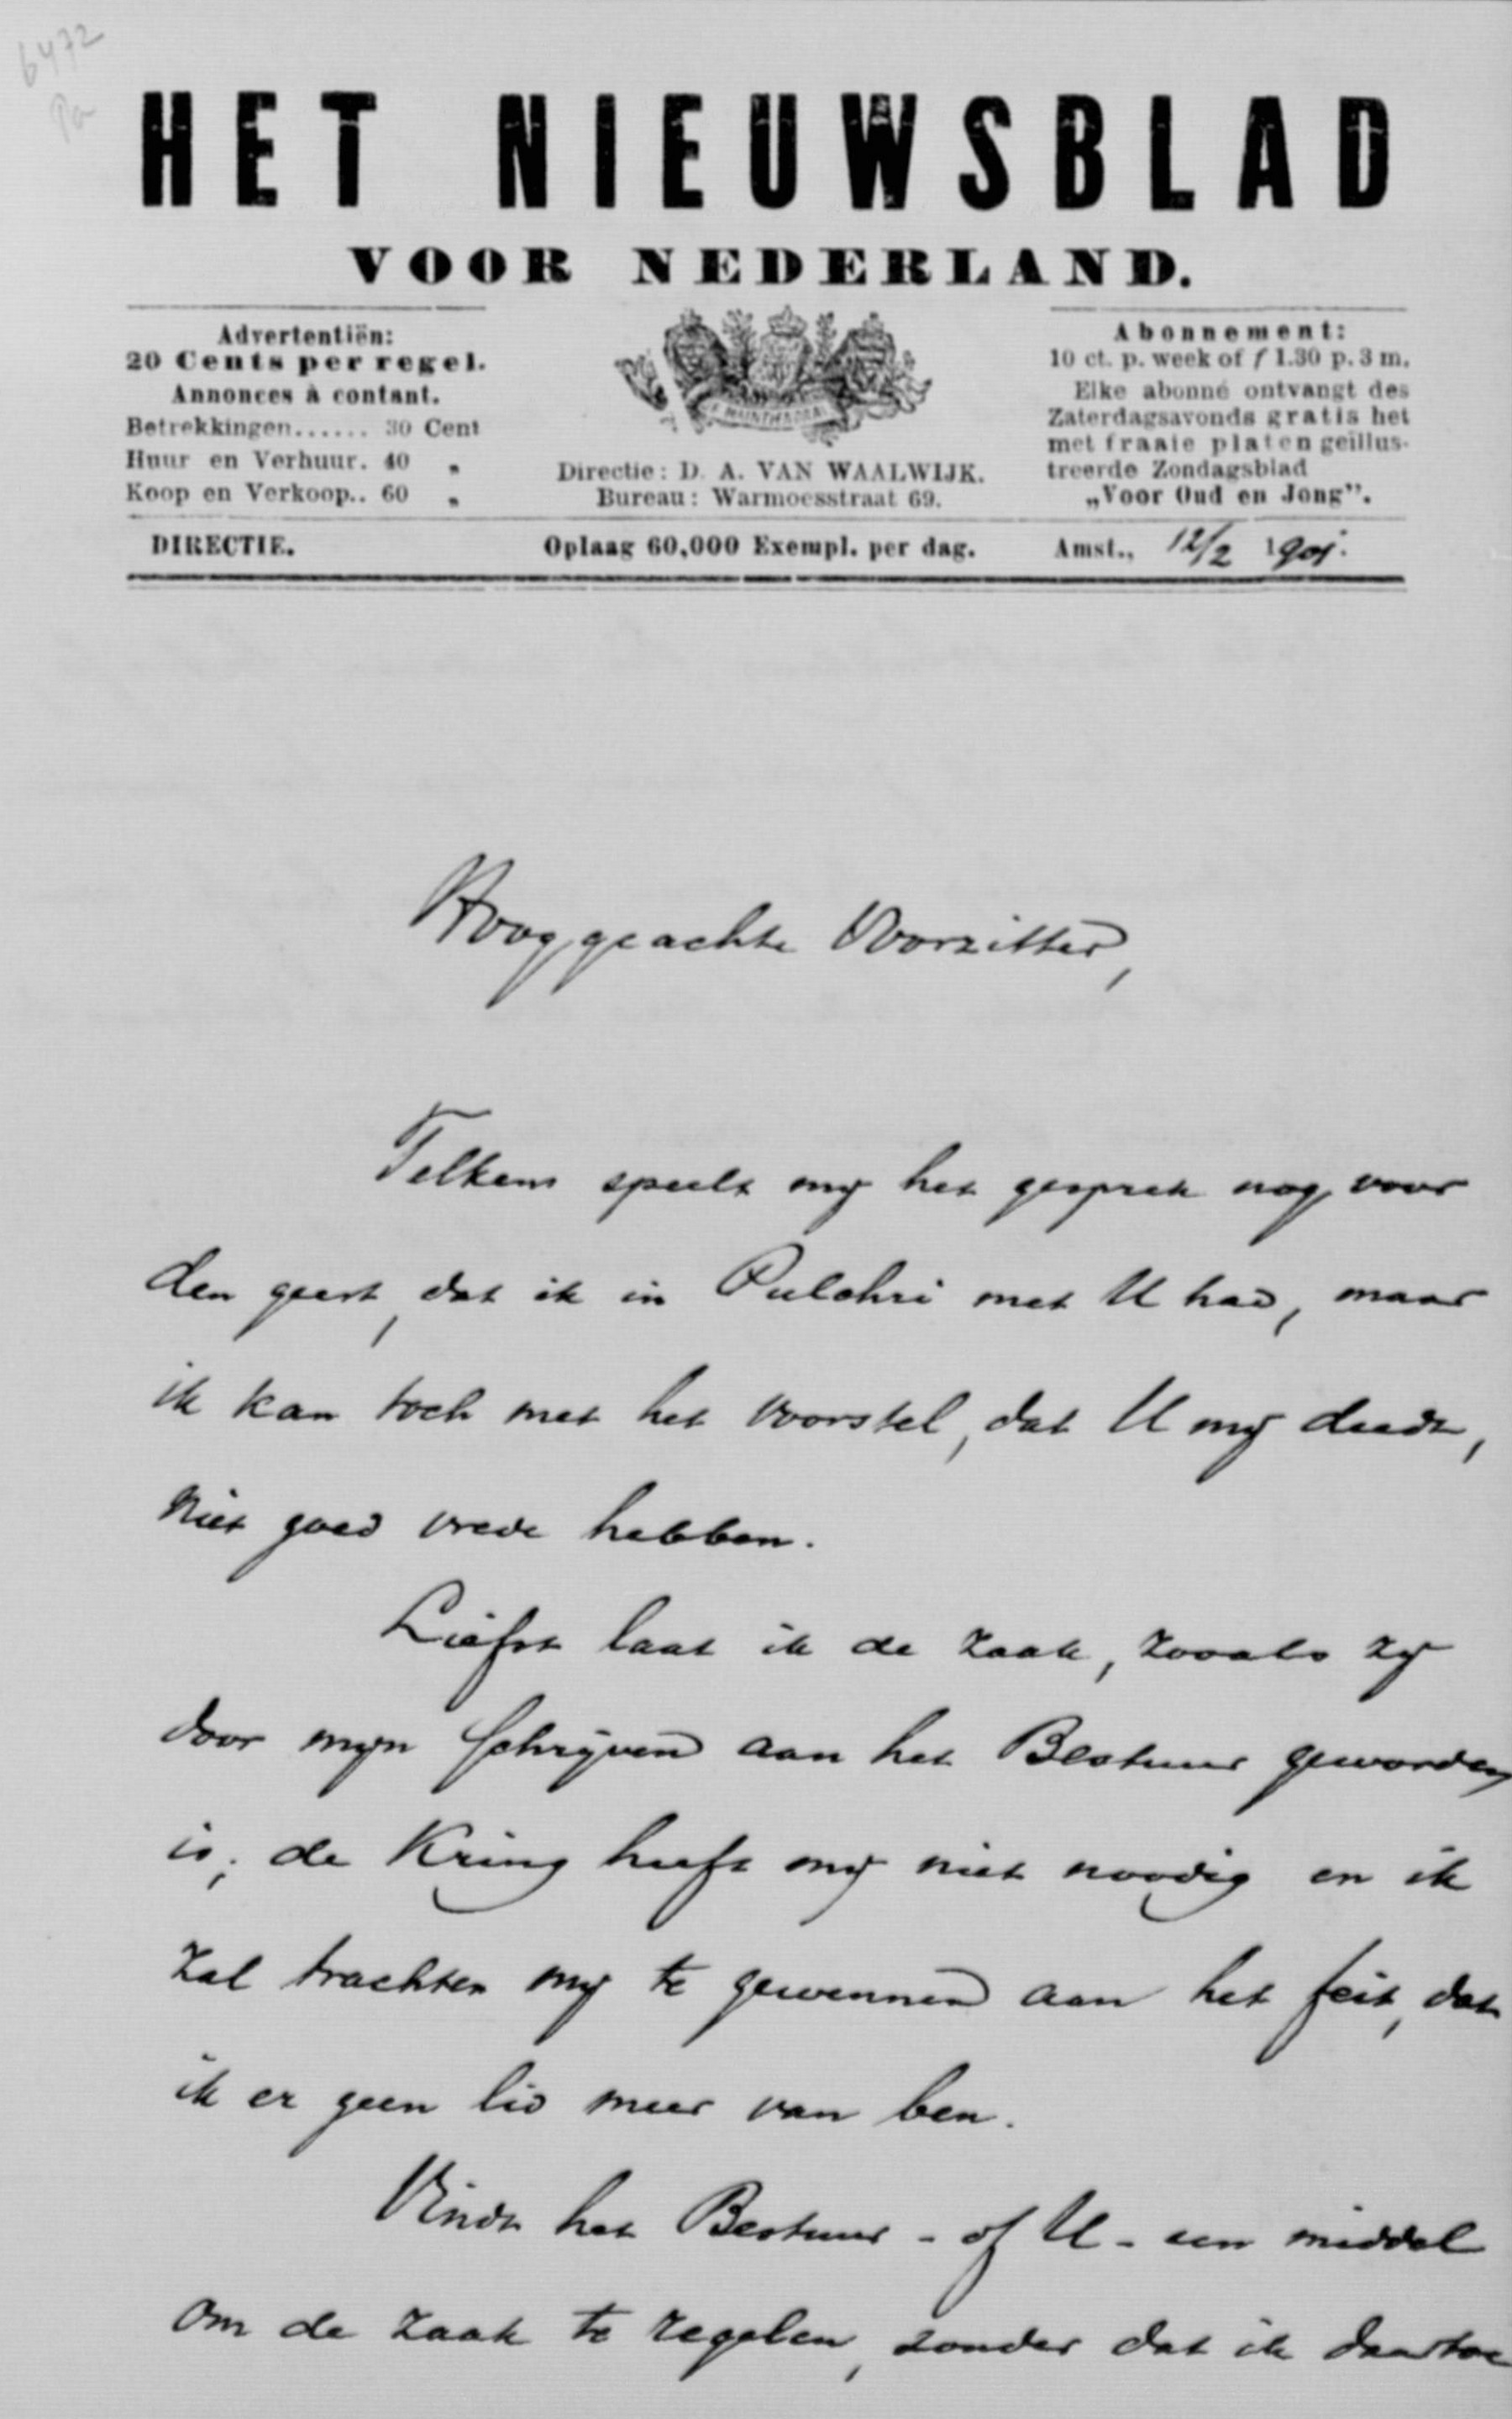 6472
Pa
HET NIEUWSBLAD
VOOR NEDERLAND.
Advertentiën:
20 Cents per regel.
Annonces à contant.
Betrekkingen...... 30 Cent
Huur en Verhuur. 40 „
Koop en Verkoop.. 60 „
Directie: D. A. VAN WAALWIJK.
Bureau: Warmoesstraat 69.
Abonnement:
10 ct. p. week of f 1.30 p. 3 m.
Elke abonné ontvangt des
Zaterdagsavonds gratis het
met fraaie platen geillus-
treerde Zondagsblad
„Voor Oud en Jong”.
DIRECTIE.
Oplaag 60,000 Exempl. per dag.
Amst., 12/2 1901.
Hooggeachte Voorzitter,
Telkens speelt mij het gesprek nog voor
den geest, dat ik in Pulchri met U had, maar
ik kan toch met het voorstel, dat U mij deedt,
niet goed vrede hebben.
Liefst laat ik de zaak, zooals zij
door mijn schrijven aan het Bestuur geworden
is; de Kring heeft mij niet noodig en ik
zal trachten mij te gewennen aan het feit, dat
ik er geen lid meer van ben.
Vindt het Bestuur - of U - een middel
om de zaak te regelen, zonder dat ik daartoe